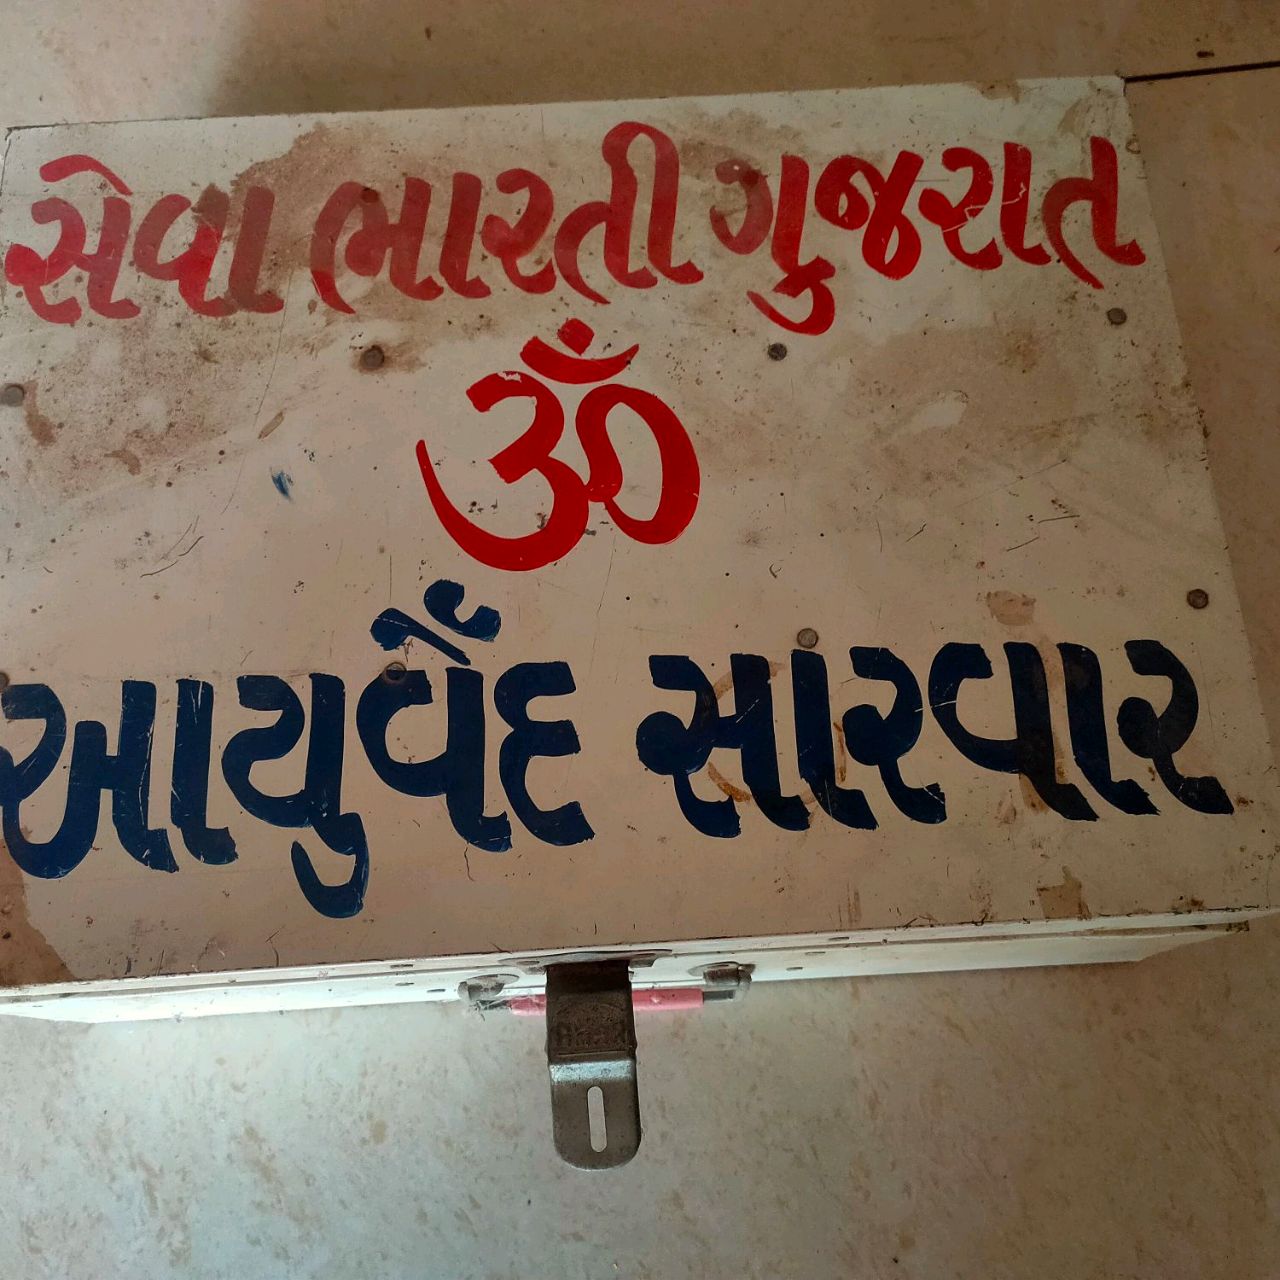 સેવા ભારતી ગુજરાત
ॐ
આયુર્વેદ સારવાર